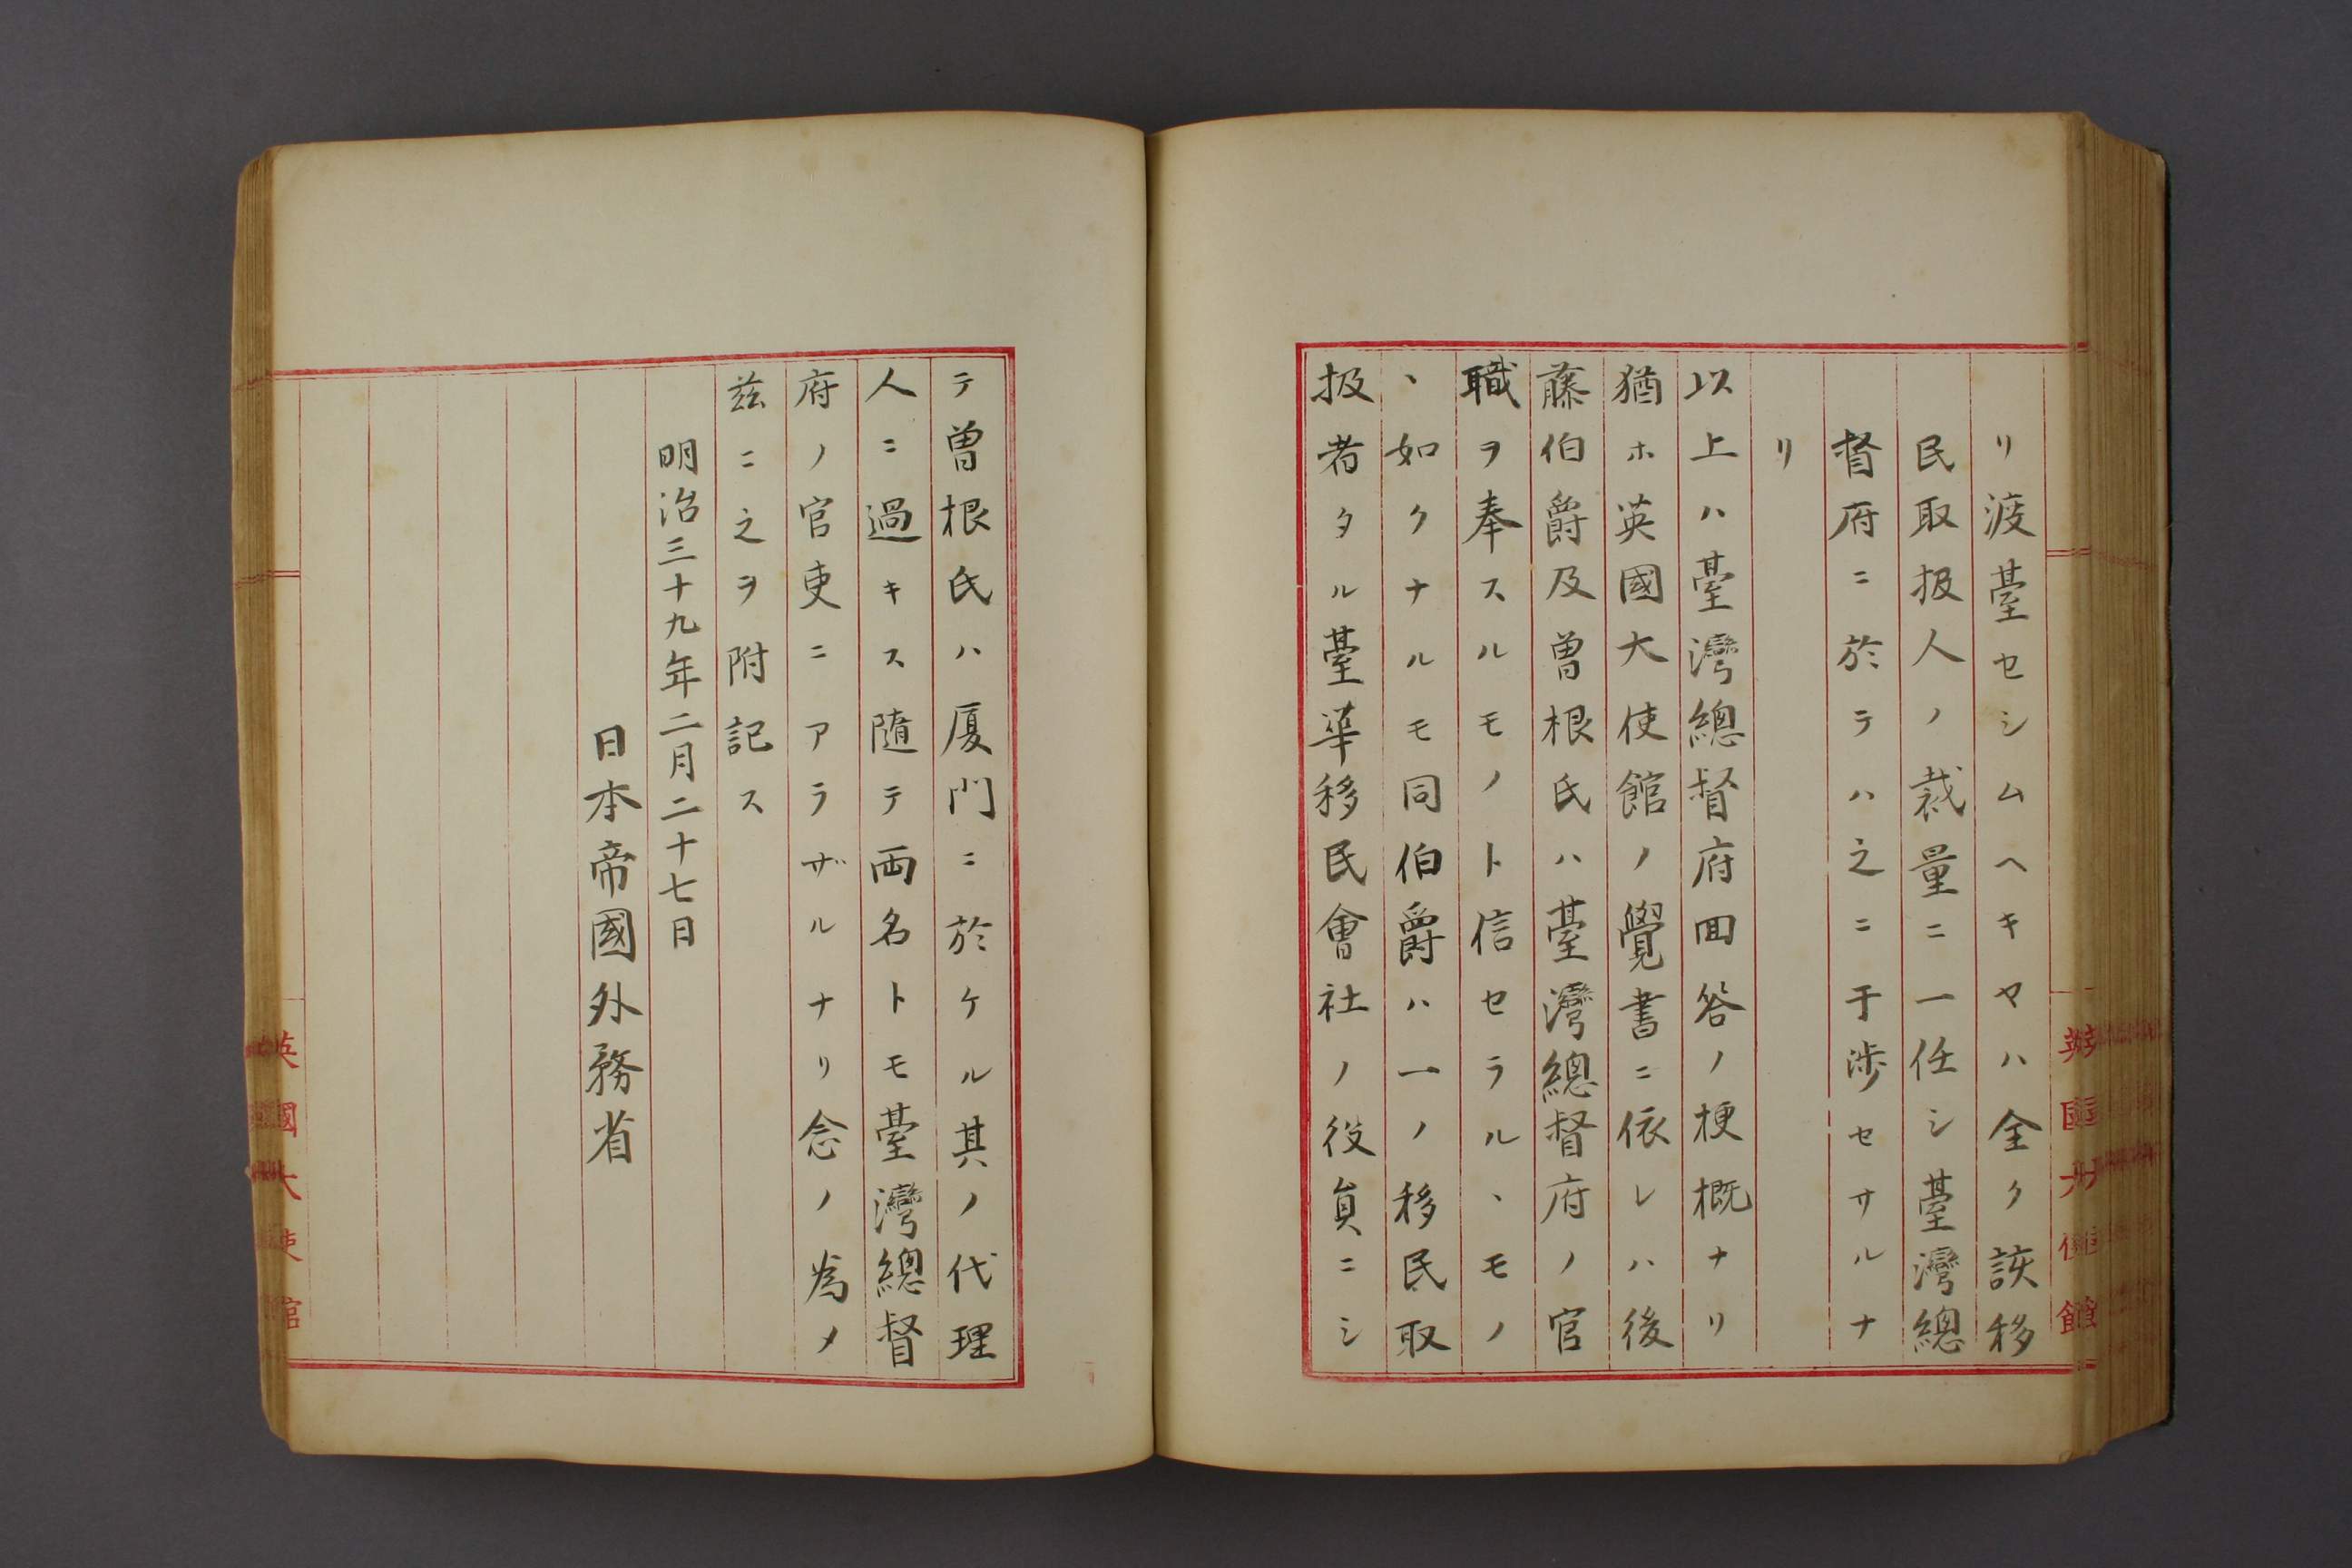 リ渡臺セシムヘキヤハ全ク該移
民取扱人ノ裁量ニ一任シ臺灣總
督府ニ於テハ之ニ干渉セサルナ
リ
以上ハ臺灣總督府回答ノ梗概ナリ
猶ホ英國大使館ノ覺書ニ依レハ後
藤伯爵及曽根氏ハ臺灣總督府ノ官
職ヲ奉スルモノト信セラル、モノ
、如クナルモ同伯爵ハ一ノ移民取
扱者タル臺華移民會社ノ役員ニシ
テ曽根氏ハ厦門ニ於ケル其ノ代理
人ニ過キス随テ両名トモ臺灣總督
府ノ官吏ニアラザルナリ念ノ為メ
茲ニ之ヲ附記ス
明治三十九年二月二十七日
日本帝國外務省
英國大使館